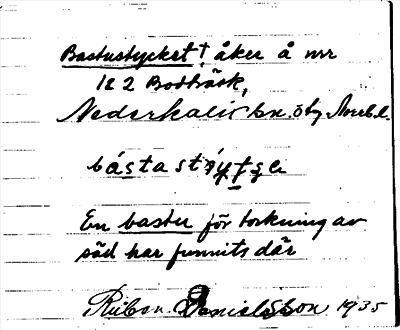 Bastustycket † åker å nr
1 & 2 Bodträsk,
Nederkalix sn. Norrb. l.
bástastýtʃe
En bastu för torkning av
säd har funnits där
Ruben Danielsson 1935